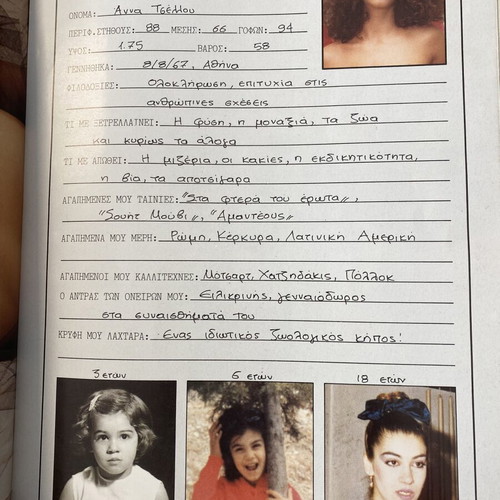 ΟΝΟΜΑ: Άννα Τσέλλου
ΠΕΡΙΦ.ΣΤΗΘΟΥΣ: 88 ΜΕΣΗΣ: 66 ΓΟΦΩΝ: 94
ΥΨΟΣ: 1.75 ΒΑΡΟΣ: 58
ΓΕΝΝΗΘΗΚΑ: 8/8/67, Αθήνα
ΦΙΛΟΔΟΞΙΕΣ: Ολοκλήρωση, επιτυχία στις
ανθρώπινες σχέσεις
ΤΙ ΜΕ ΞΕΤΡΕΛΛΑΙΝΕΙ: Η φύση, η μοναξιά, τα ζώα
και κυρίως τα άλογα
ΤΙ ΜΕ ΑΠΩΘΕΙ: Η μιζέρια, οι κακίες, η εκδικητικότητα,
η βία, τα αποτσίγαρα
ΑΓΑΠΗΜΕΝΕΣ ΜΟΥ ΤΑΙΝΙΕΣ: "Στα φτερά του έρωτα",
"Σουήτ Μούβι", "Αμαντέους"
ΑΓΑΠΗΜΕΝΑ ΜΟΥ ΜΕΡΗ: Ρώμη, Κέρκυρα, Λατινική Αμερική
ΑΓΑΠΗΜΕΝΟΙ ΜΟΥ ΚΑΛΛΙΤΕΧΝΕΣ: Μότσαρτ, Χατζηδάκις, Πόλλοκ
Ο ΑΝΤΡΑΣ ΤΩΝ ΟΝΕΙΡΩΝ ΜΟΥ: Ειλικρινής, γενναιόδωρος
στα συναισθήματά του
ΚΡΥΦΗ ΜΟΥ ΛΑΧΤΑΡΑ: Ένας ιδιωτικός ζωολογικός κήπος!
3 ετών 6 ετών 18 ετών